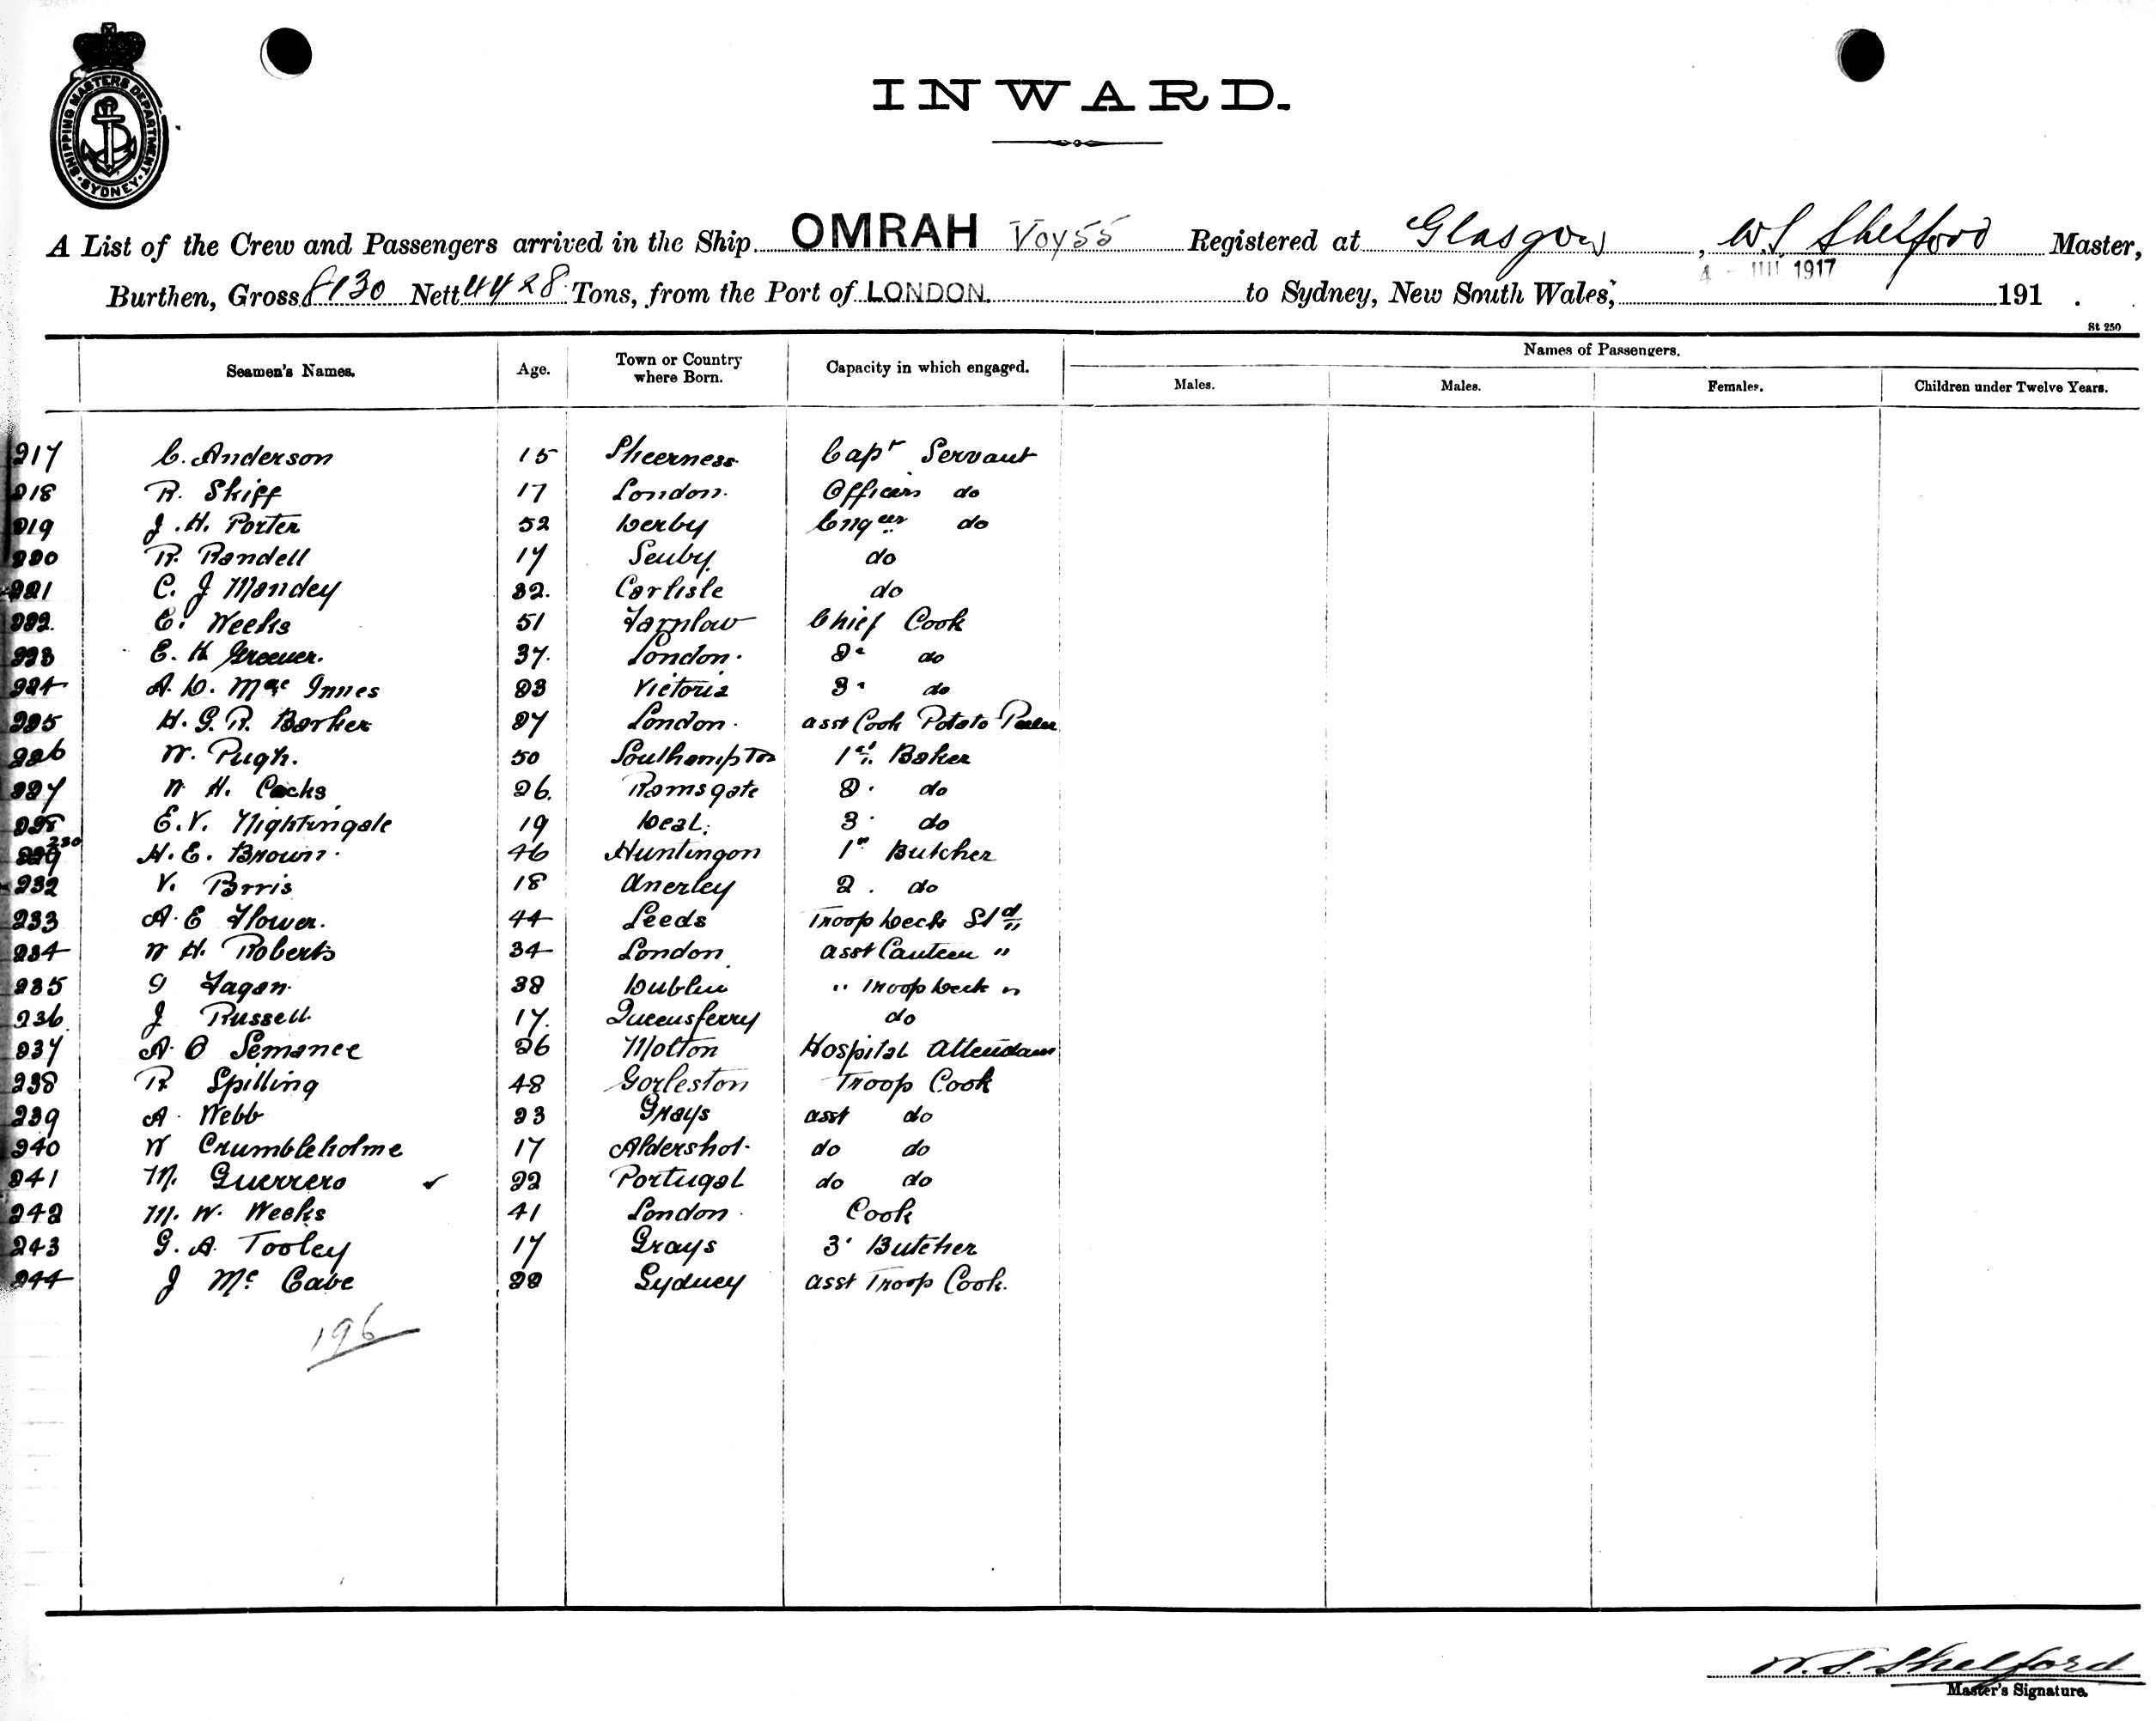 SHIPPING MASTERS DEPARTMENT. SYDNEY.
INWARD.
A List of the Crew and Passengers arrived in the Ship OMRAH Voy 55 Registered at Glasgow, W.S. Shelford Master,
4 - 1917
Burthen, Gross 8130 Nett 4428 Tons, from the Port of LONDON. to Sydney, New South Wales, 191 .
St 250
Seamen's Names. Age. Town or Country where Born. Capacity in which engaged. Names of Passengers.
Males. Males. Females. Children under Twelve Years.
217 C. Anderson 15 Sheerness Capt Servant
218 R. Skiff 17 London. Officers do
219 J. H. Porter 52 Derby Engeer do
220 R. Randell 17 do
221 C. J Mandey 32. Carlisle do
222. C. Weeks 51 Chief Cook
223 E. H Greener. 37. London. 2 do
224 A. D. Mac Innes 23 Victoria 3 do
225 H. G. R. Barker 27 London. asst Cook Potato Peeler
226 W. Pugh. 50 Southampton 1st Baker
227 W. H. Cocks 26. Ramsgate 2. do
228 E. V. Nightingale 19 Deal. 3 do
229 230 H. E. Brown. 46 Huntingon 1st Butcher
232 V. Brris 18 Anerley 2. do
233 A. E Flower. 44 Leeds Troop Deck Std
234 W H. Roberts 34 London asst Canteen "
235 Fagan 38 Dublin " Troop Deck "
236 J Russell 17. Queensferry do
237 A. O Semance 26 Hospital Attendant
238 R Spilling 48 Gorleston Troop Cook
239 A. Webb 23 Grays asst do
240 W Crumbleholme 17 Aldershot. do do
241 M. Guerrero ✓ 22 Portugal do do
242 M. W. Weeks 41 London. Cook
243 G. A. Tooley 17 Grays 3 Butcher
244 J Mc Cabe 22 Sydney asst Troop Cook.
196
W. S. Shelford
Master's Signature.